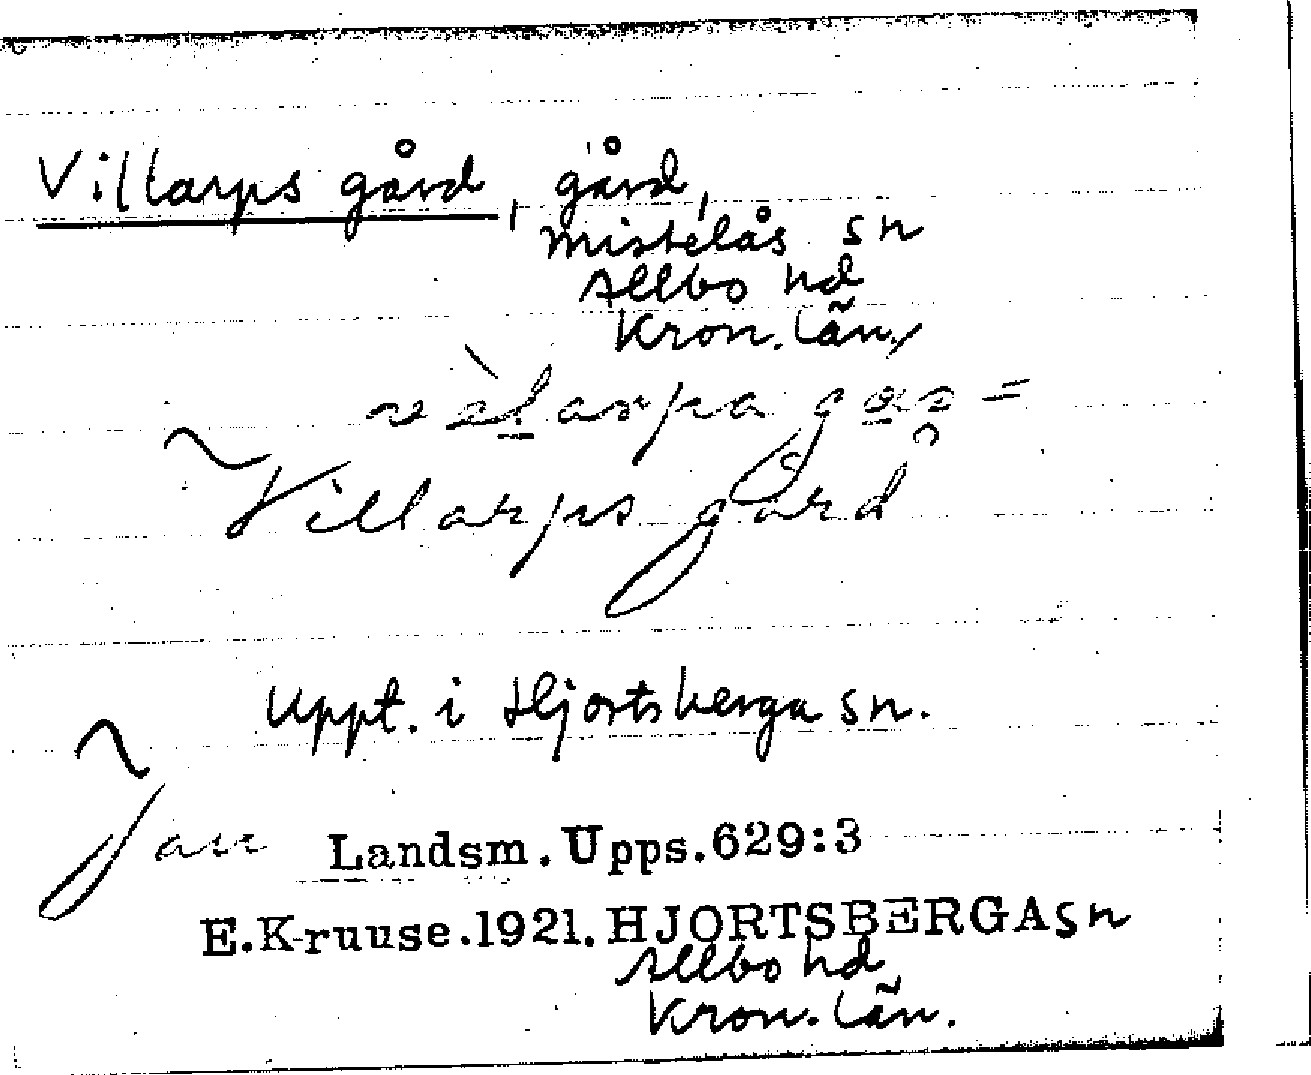 Villarps gård, gård,
Mistelås sn
Allbo hd
Kron. län,
vèlarpa gɑs =
Villarps gård
Uppt. i Hjortsberga sn.
Jan Landsm. Upps. 629:3
E. Kruuse. 1921. HJORTSBERGA sn
Allbo hd
Kron. län.